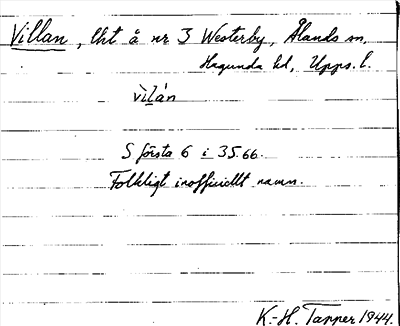 Villan, lht å nr 3 Westerby, Ålands sn,
Hagunda hd, Upps. l.
vìlán
S första 6 i 35.66.
Folkligt inofficiellt namn.
K.-H. Tapper 1944.